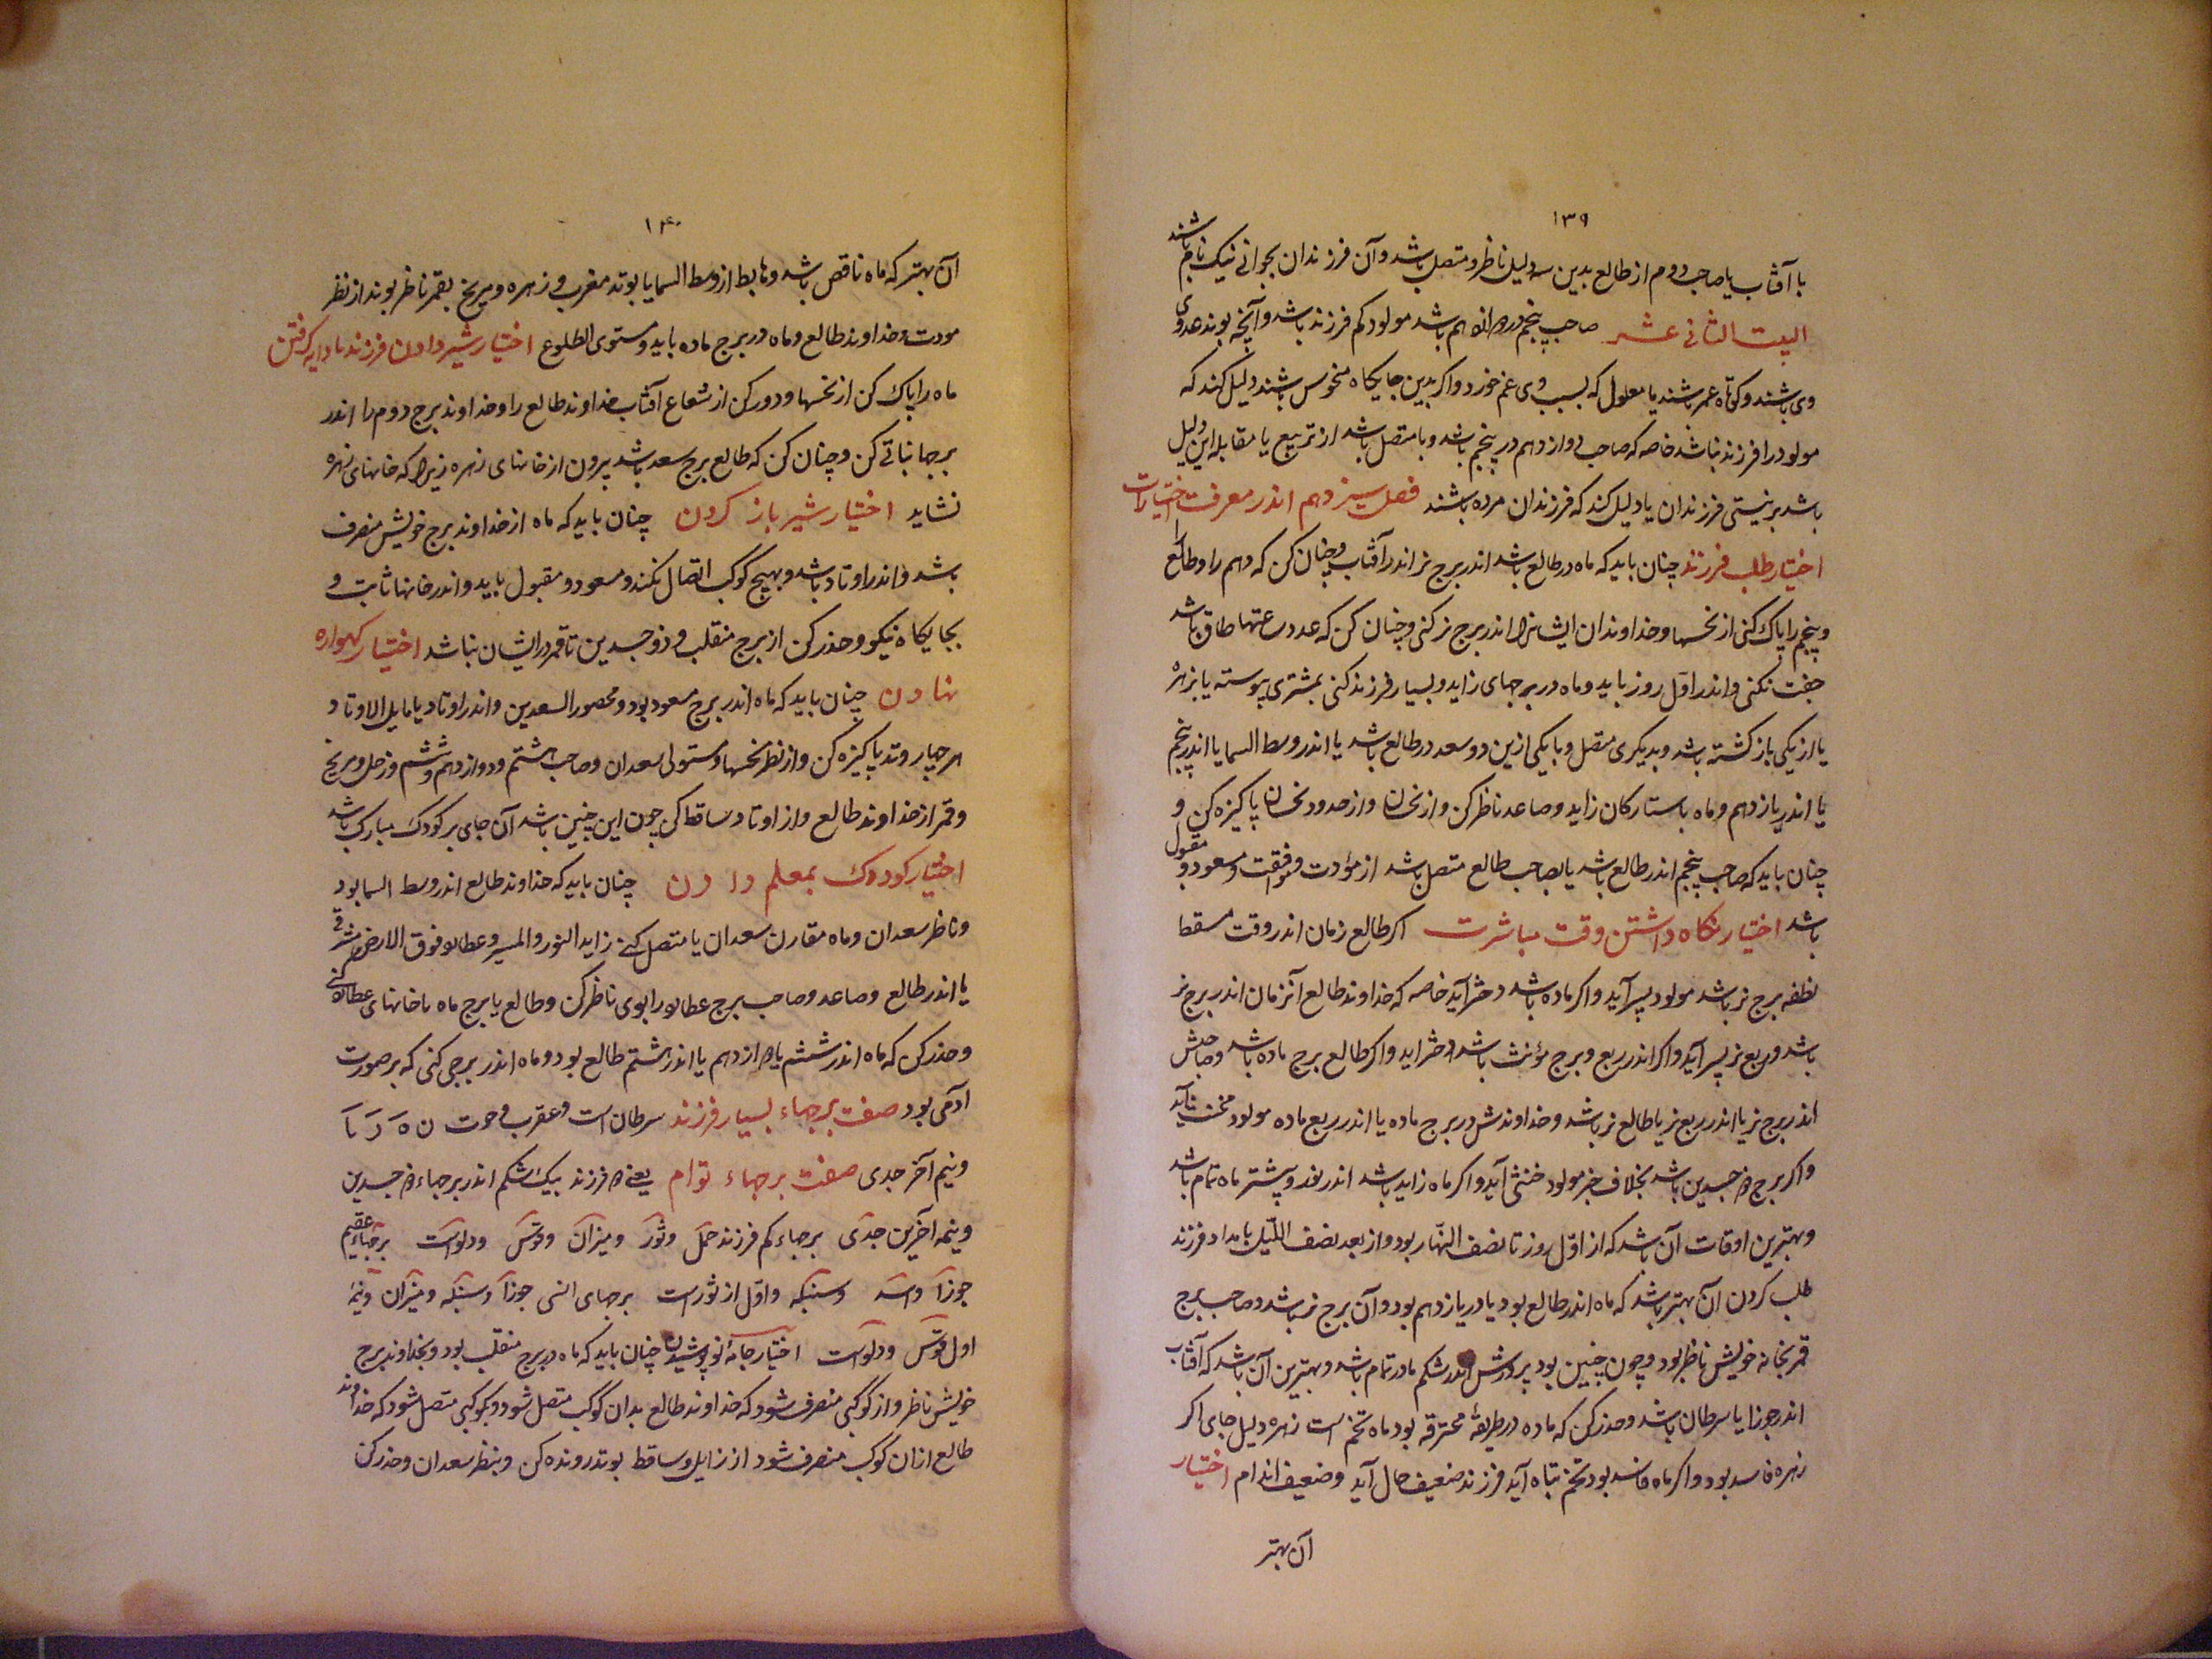 ۱۳۹
با آفتاب یا صاحب دوم از طالع بدین سه دلیل ناظر و متصل باشد و آن فرزندان بجوانی نیک نام باشند
البیت الثانی عشر صاحب پنجم در دوازدهم باشد مولود کم فرزند باشد و آنچه بوند عدوی
وی باشند و کوتاه عمر باشند یا معلول که بسبب وی غم خورد و اکر بدین جایکاه منحوس باشند دلیل کند که
مولود را فرزند نباشد خاصه که صاحب دوازدهم در پنجم باشد و با متصل باشد از تربیع یا مقابله این دلیل
باشد بر نیستی فرزندان یا دلیل کند که فرزندان مرده باشند فصل سیزدهم اندر معرفت اختیارات
اختیار طلب فرزند چنان باید که ماه در طالع باشد اندر برج نر اندر آفتاب و چنان کن که دهم را و طالع را
و پنجم را پاک کنی از نحسها و خداوندان ایشانرا اندر برج نر کنی و چنان کن که عدد ساعتها طاق باشد
جفت نکنی و اندر اوّل روز باید و ماه در برجهای زاید و بسیار فرزند کنی بمشتری پیوسته یا بزهره
یا از یکی باز کشته باشد و بدیکری متصل و با یکی ازین دو سعد در طالع باشد یا اندر وسط السما یا اندر پنجم
یا اندر یازدهم و ماه با ستارکان زاید و صاعد ناظر کن و از نحسان و از حدود نحسان پاکیزه کن و
چنان باید که صاحب پنجم اندر طالع باشد یا بصاحب طالع متصل باشد از مؤدت و موافقت و مسعود و مقبول
باشد اختیار نکاه داشتن وقت مباشرت اکر طالع زمان اندر وقت مسقط
نطفه برج نر باشد مولود پسر آید و اکر ماده باشد دختر آید خاصه که خداوند طالع آنزمان اندر برج نر
باشد و ربع نر پسر آید و اکر اندر ربع و برج مؤنث باشد دختر اید و اکر طالع برج ماده باشد و صاحبش
اندر برج نر یا اندر ربع نر یا طالع نر باشد و خداوندش در برج ماده یا اندر ربع ماده مولود مخنث آید
و اکر برج ذو جسدین باشد بخلاف خبر مولود خنثی آید و اکر ماه زاید باشد اندر نور و پیشتر ماه تمام باشد
و بهترین اوقات آن باشد که از اوّل روز تا نصف النّهار بود و از بعد نصف اللّیل بامداد فرزند
طلب کردن آن بهتر باشد که ماه اندر طالع بود یا در یازدهم بود و آن برج نر باشد و صاحب برج
قمر بخانه خویش ناظر بود و چون چنین بود پرورش اندر شکم مادر تمام باشد و بهترین آن باشد که آفتاب
اندر جوزا یا سرطان باشد و حذر کن که ماده در طریقهٔ محترقه بود ماه تخم است زهره دلیل جای اکر
زهره فاسد بود و اکر ماه فاسد بود تخم تباه آید فرزند ضعیف حال آید و ضعیف اندام اختیار
آن بهتر
۱۴۰
آن بهتر که ماه ناقص باشد و هابط از وسط السما یا بوتد مغرب و زهره و مریخ بقمر ناظر بوند از نظر
مودت و خداوند طالع و ماه در برج ماده باید و مستوی الطلوع اختیار شیر دادن فرزند با دایه کرفتن
ماه را پاک کن از نحسها و دور کن از شعاع آفتاب خداوند طالع را و خداوند برج دوم را اندر
برجها نباتی کن و چنان کن که طالع برج سعد باشد بیرون از خانهای زهره زیرا که خانهای زهره
نشاید اختیار شیر باز کردن چنان باید که ماه از خداوند برج خویش منصرف
باشد و اندر اوتاد باشد و بهیچ کوکب اتصال نکند و مسعود و مقبول باید و اندر خانها ثابت و
بجایکاه نیکو و حذر کن از برج منقلب و ذو جسدین تا قمر در ایشان نباشد اختیار کهواره
نهادن چنان باید که ماه اندر برج مسعود بود و محصور السعدین و اندر اوتاد یا مایل الاوتاد و
هر چهار وتد پاکیزه کن و از نظر نحسها و مستولی سعدان و صاحب هشتم و دوازدهم و ششم و زحل و مریخ
و قمر از خداوند طالع و از اوتاد ساقط کن چون این چنین باشد آن جای بر کودک مبارک باشد
اختیار کودک بمعلم دادن چنان باید که خداوند طالع اندر وسط السما بود
و ناظر سعدان و ماه مقارن سعدان یا متصل کنی زاید النور و المسیر و عطارد فوق الارض مشرقی
یا اندر طالع و صاعد و صاحب برج عطارد را بوی ناظر کن و طالع یا برج ماه با خانهای عطارد کنی
و حذر کن که ماه اندر ششم یا دوازدهم یا اندر هشتم طالع بود و ماه اندر برجی کنی که بر صورت
ادمی بود صفت برجهاء بسیار فرزند سرطان است و عقرب و حوت
و نیم آخر جدی صفت برجهاء توام یعنی دو فرزند بیک شکم اندر برجهاء ذو جسدین
و نیمه آخرین جدی برجهاء کم فرزند حمل و ثور و میزان و قوس و دلو است برجهاء عقیم
جوزا و اسد و سنبله و اوّل از ثور است برجهای انسی جوزا و سنبله و میزان و نیمهٔ
اول قوس و دلو است اختیار جامهٔ نو پوشیدن چنان باید که ماه در برج منقلب بود و بخداوند برج
خویش ناظر و از کوکبی منصرف شود که خداوند طالع بدان کوکب متصل شود و بکوکبی متصل شود که خداوند
طالع ازان کوکب منصرف شود از زایل و ساقط بوتد رونده کن و بنظر سعدان و حذر کن